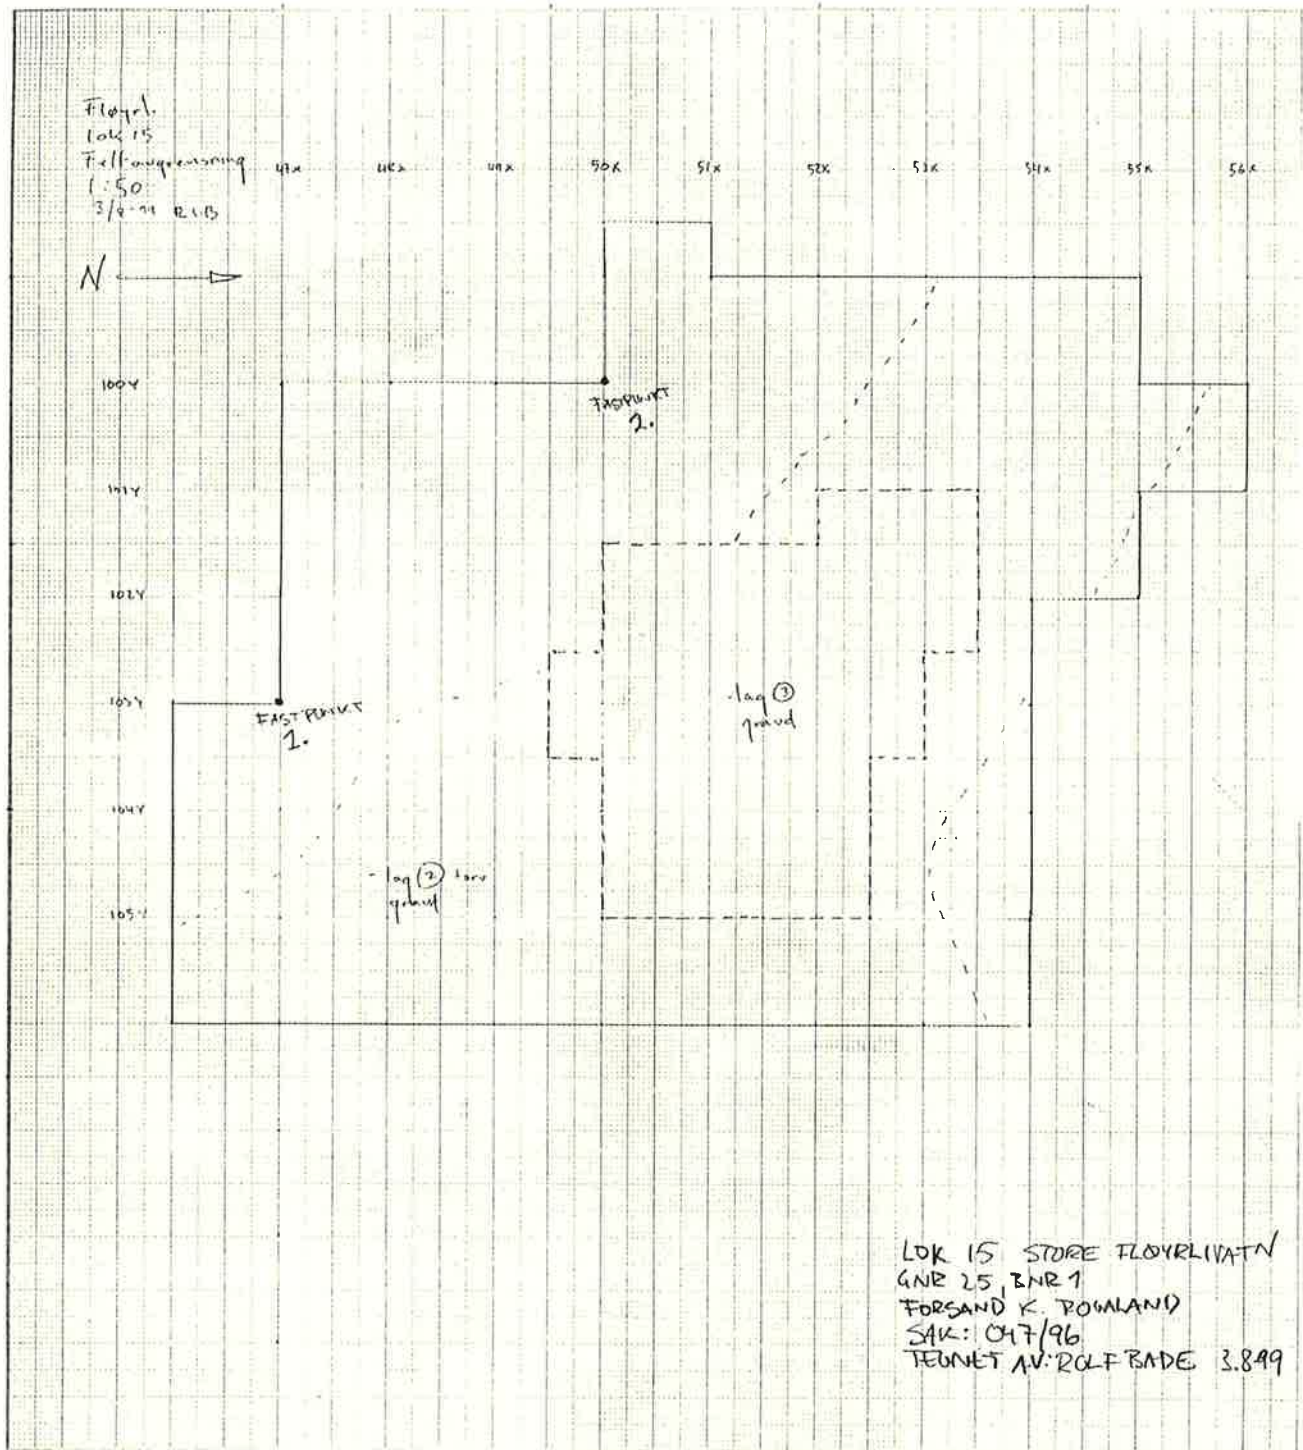 Fløyrl.
lok 15
Feltavgrensning
1:50
3/8-99 RLB
47x 48x 49x 50x 51x 52x 53x 54x 55x 56x
N
100Y
FASTPUNKT
2.
101Y
102Y
103Y
FASTPUNKT
1.
-lag ③
gravd
104Y
-lag ② torv
gravd
105Y
LOK 15 STORE FLØYRLIVATN
GNR 25, BNR 1
FORSAND K. ROGALAND
SAK: 047/96
TEGNET AV: ROLF BADE 3.8.99